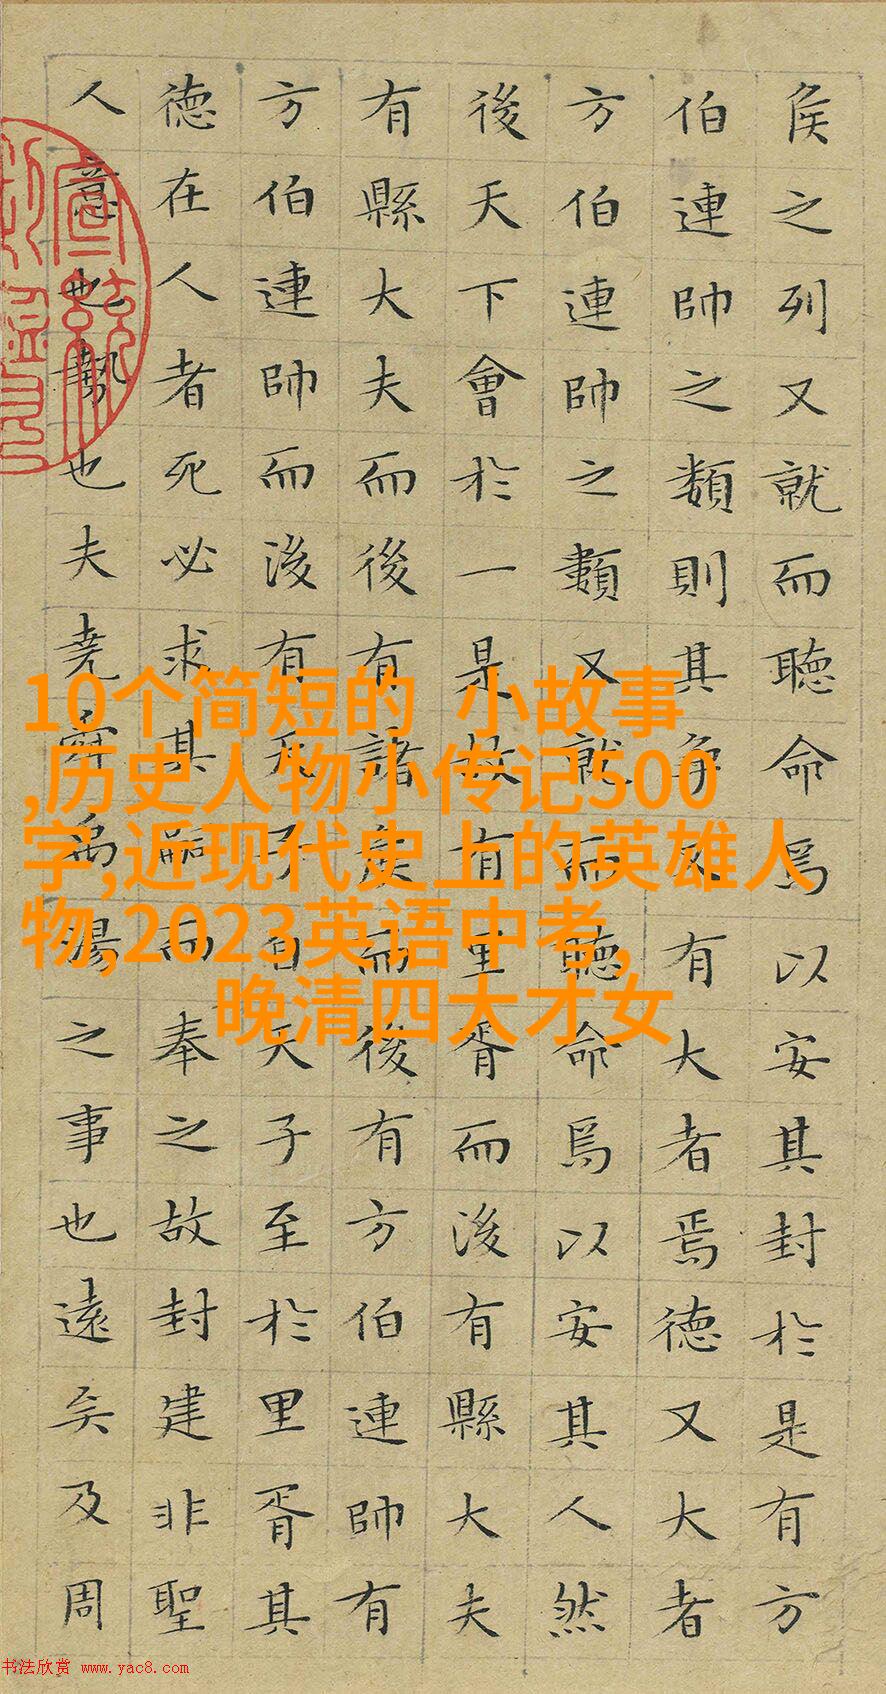 侯之列又就而聽命焉以安其封於是有方
伯連帥之類則其爭又有大者焉德又大者
方伯連帥之類又就而聽命焉以安其人然
後天下會於一是故有里胥而後有縣大夫
有縣大夫而後有諸侯而後有方伯連帥有
方伯連帥而後有天子自天子至於里胥其
德在人者死必求其嗣而奉之故封建非聖
人意也勢也夫堯舜禹湯之事也遠矣及周
10个简短的 小故事
,历史人物小传记500
字,近现代史上的英雄人
物,2023英语中考,
晚清四大才女
书法欣赏 www.yac8.com